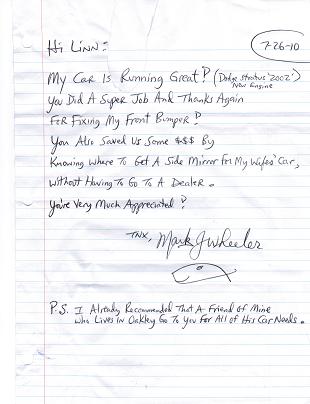 7-26-10
Hi Linn:
My Car Is Running Great! (Dodge Stratus "2002"
New Engine)
You Did A Super Job And Thanks Again
For Fixing My Front Bumper!
You Also Saved Us Some $$$ By
Knowing Where To Get A Side Mirror For My Wifes' Car,
Without Having To Go To A Dealer.
You're Very Much Appreciated!
Tnx, Mark J Wheeler
P.S. I Already Recommended That A Friend of Mine
Who Lives in Oakley Go To You For All of His Car Needs.